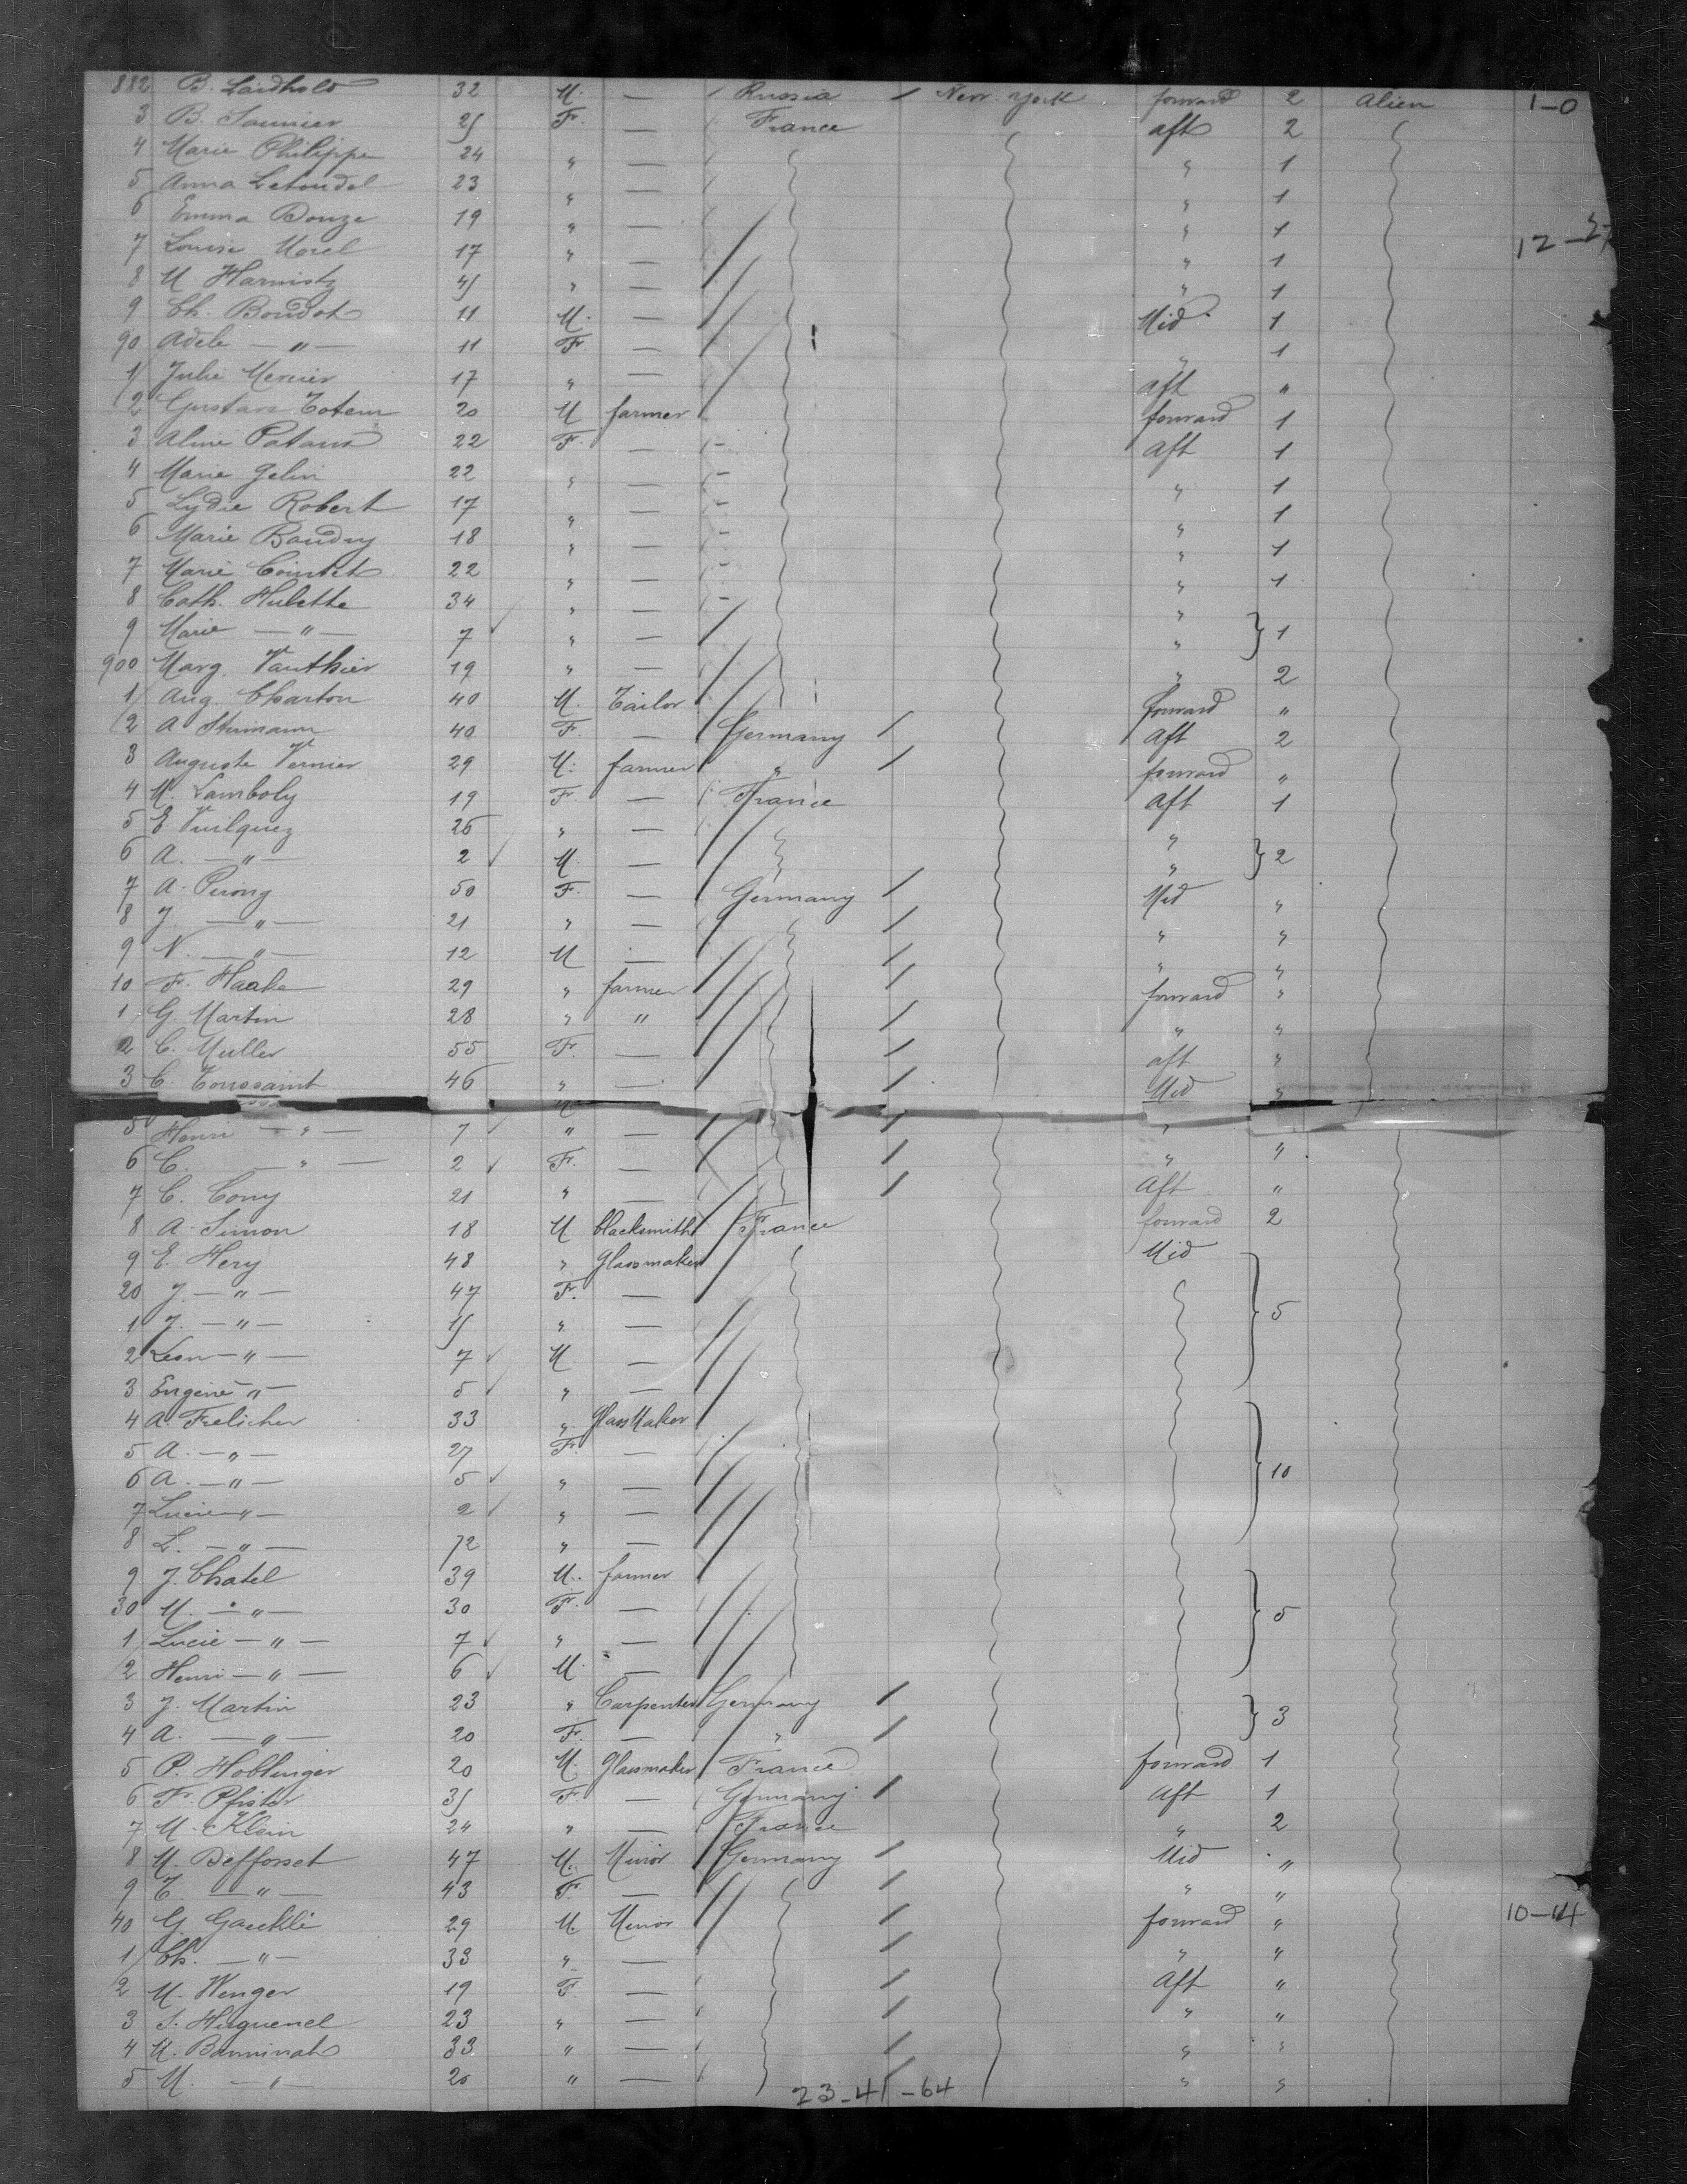 882 B. Laidhold 32 M. — Russia New-York forward 2 Alien 1-0
3 B. Saunier 25 F. — France aft 2
4 Marie Philippe 24 " — " 1
5 Anna Letondel 23 " — " 1
6 Emma Donze 19 " — " 1
7 Louise Morel 17 " — " 1 12-
8 M. Harnistz 45 " — " 1
9 Ch. Boudot 11 M. — Mid 1
90 Adele — " — 11 F. — " 1
1 Julie Mercier 17 " — aft "
2 Gustave Totem 20 M farmer forward 1
3 Aline 22 F. — aft 1
4 Marie Gelin 22 " — " 1
5 Lydie Robert 17 " — " 1
6 Marie Baudry 18 " — " 1
7 Marie Cointet 22 " — " 1
8 Cath. Hulette 34 " — "
9 Marie — " — 7 " — " } 1
900 Marg. Vauthier 19 " — " 2
1 Aug Charton 40 M. Tailor forward "
2 A Sturmann 40 F. — Germany aft 2
3 Auguste Vernier 29 M. farmer " forward "
4 M. Lamboly 19 F. — France aft 1
5 E Vuilquez 26 " — "
6 A. — " — 2 M. — " } 2
7 A. Pirong 50 F. — Germany Mid "
8 J. — " — 21 " — " "
9 N. — " — 12 M — " "
10 F. Haake 29 " farmer forward "
1 G. Martin 28 " " " "
2 C. Muller 55 F. — aft "
3 C. Toussaint 46 " — Mid "
5 Henri — " — 7 " — "
6 C. — " — 2 F. — " "
7 C. Cony 21 " — Aft "
8 A. Simon 18 M blacksmith France forward 2
9 E. Hery 48 " glassmaker Mid
20 J. — " — 47 F. —
1 J. — " — 15 " — } 5
2 Leon — " — 7 M —
3 Eugène — " — 5 " —
4 A. Frelicher 33 " Glass Maker
5 A. — " — 27 F. —
6 A. — " — 5 " — } 10
7 Lucie — " — 2 " —
8 L. — " — 72 " —
9 J. Chatel 39 M. farmer
30 M. — " — 30 F. — } 5
1 Lucie — " — 7 " —
2 Henri — " — 6 M. —
3 J. Martin 23 " Carpenter Germany } 3
4 A. — " — 20 F. — "
5 P. Hoblinger 20 M. Glassmaker France forward 1
6 F. Pfister 35 F. — Germany Aft 1
7 M. Klein 24 " — France " 2
8 M. Deffosset 47 M. Minor Germany Mid "
9 T. — " — 43 F. — " "
40 G. Gaeckli 29 M. Minor forward " 10-14
1 Ch. — " — 33 " — " "
2 M. Wenger 19 F. — Aft "
3 S. Huguenel 23 " — " "
4 M. 33 " — " "
5 M. — " — 20 " — " "
23-41-64